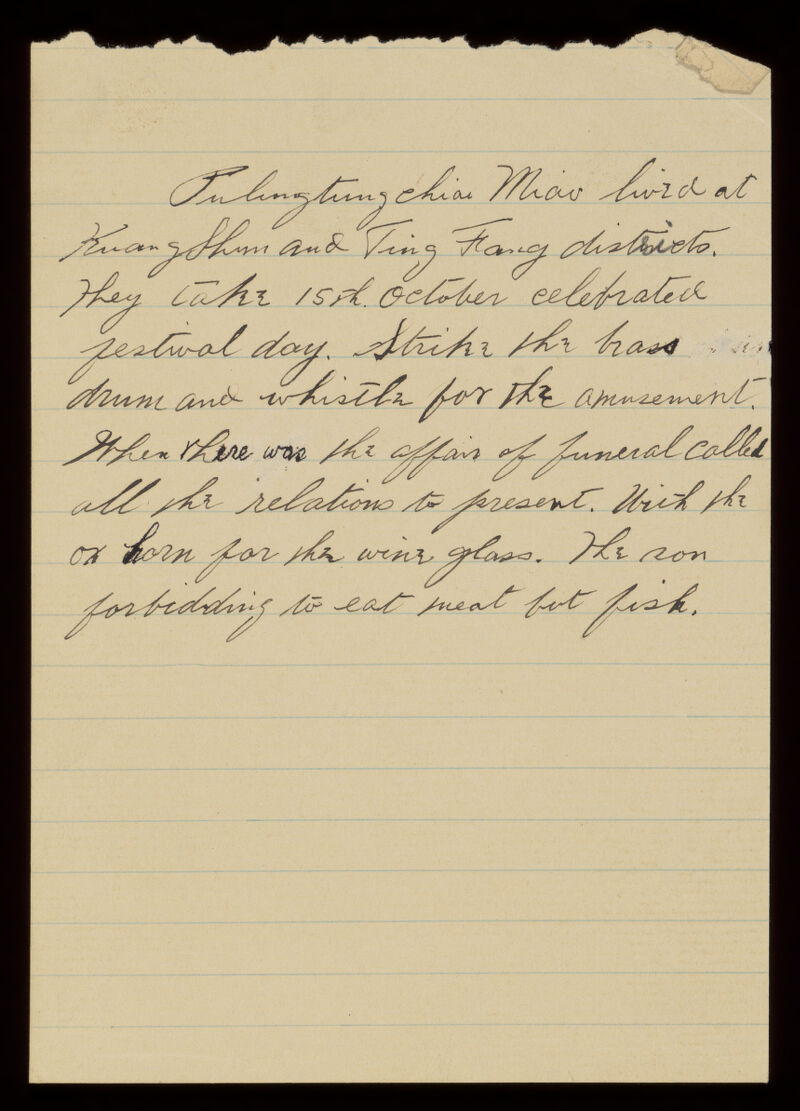 Pulungtungchiai Miao lived at
Kuang Shun and Ting Fang districts.
They take 15th. October celebrated
festival day. Strike the brass
drum and whistle for the amusement.
When there was the affair of funeral called
all the relations to present. With the
ox horn for the wine glass. The son
forbidding to eat meat but fish.